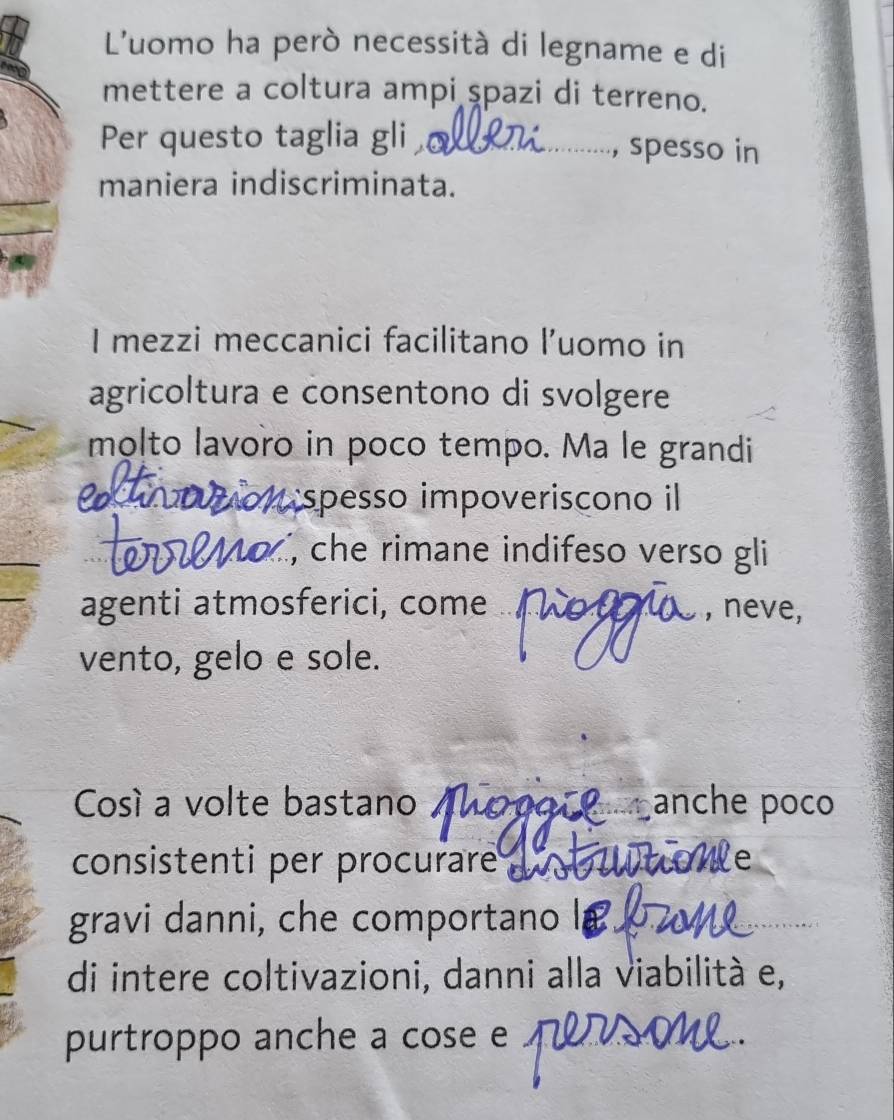 L'uomo ha però necessità di legname e di
mettere a coltura ampi spazi di terreno.
Per questo taglia gli alberi, spesso in
maniera indiscriminata.
I mezzi meccanici facilitano l'uomo in
agricoltura e consentono di svolgere
molto lavoro in poco tempo. Ma le grandi
coltivazioni spesso impoveriscono il
terreno, che rimane indifeso verso gli
agenti atmosferici, come pioggia, neve,
vento, gelo e sole.
Così a volte bastano pioggie anche poco
consistenti per procurare distruzione e
gravi danni, che comportano le frane
di intere coltivazioni, danni alla viabilità e,
purtroppo anche a cose e persone.